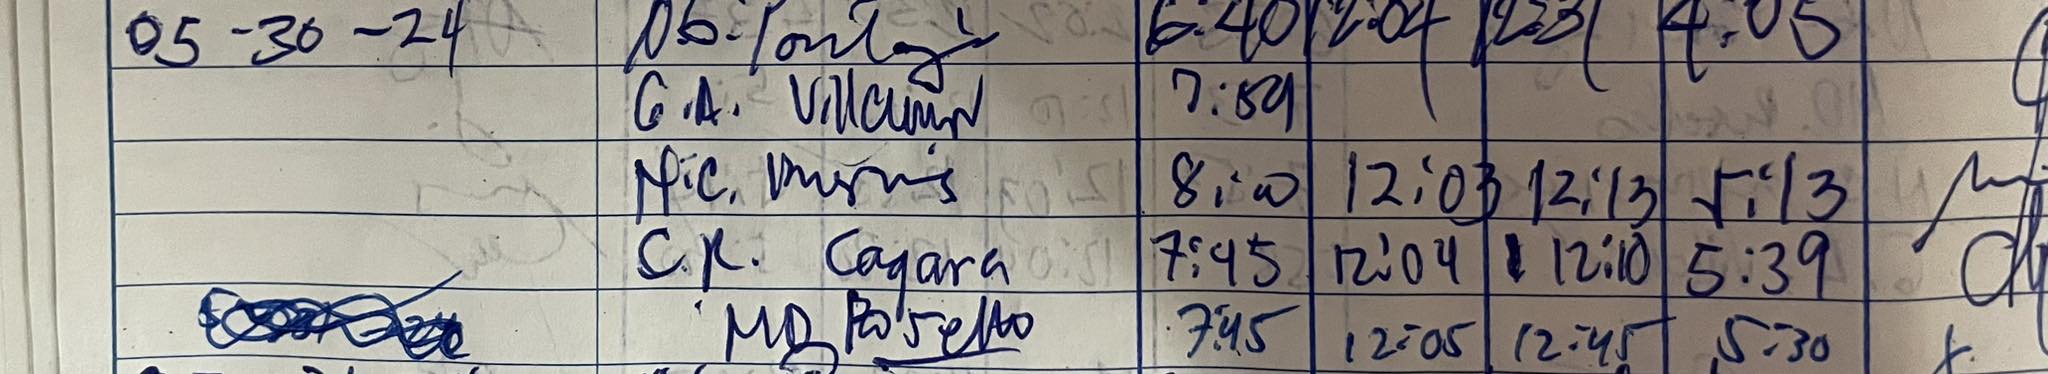 05-30-24 6:40 12:04 12:31 4:05
G.A. Villamin 7:59
M.C. 8:00 12:03 12:13 5:13
C.K. Cagara 7:45 12:04 12:10 5:39
MD Roselło 7:45 12:05 12:45 5:30